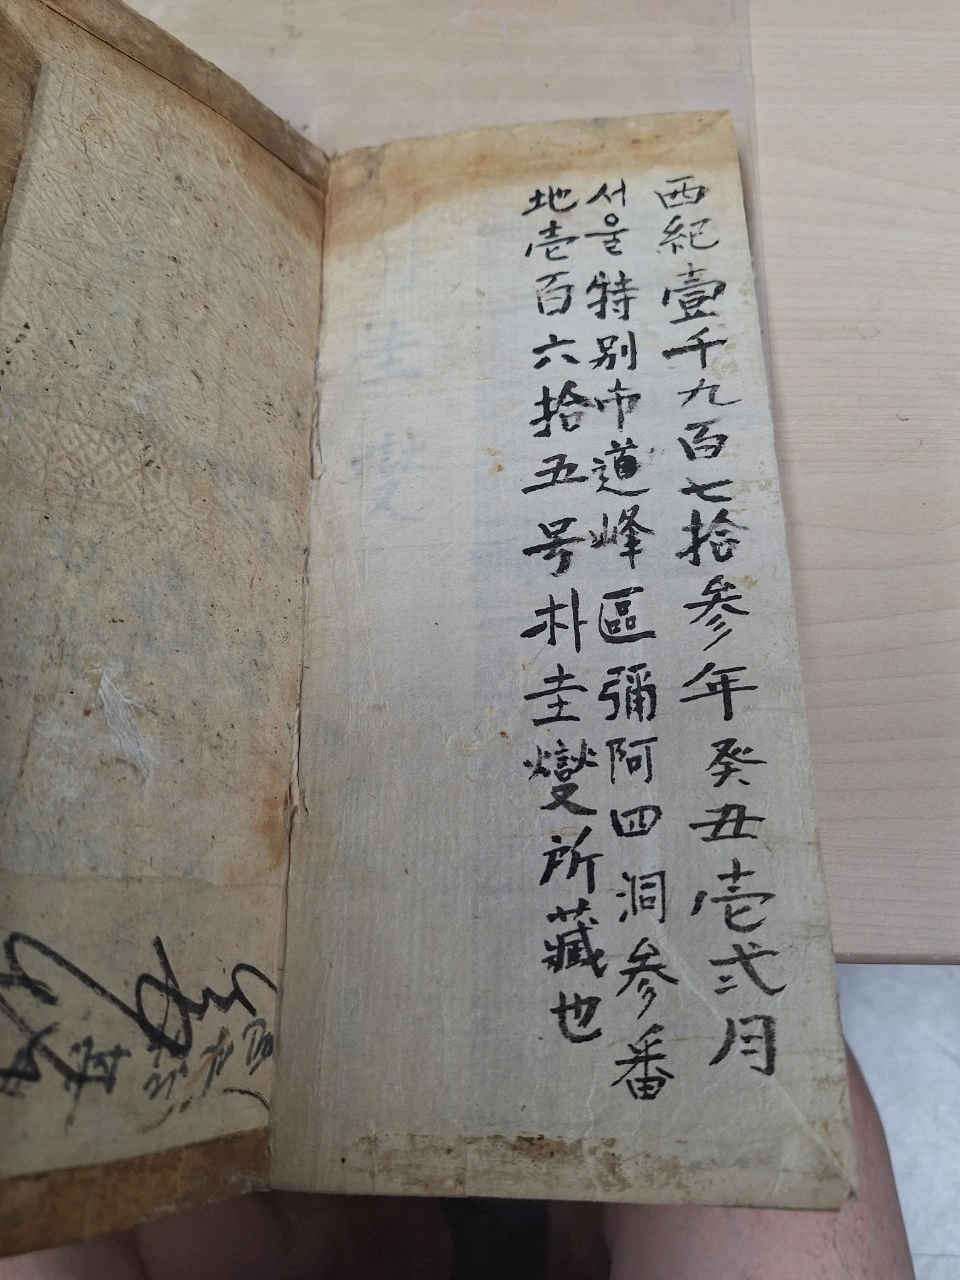 西紀壹千九百七拾参年癸丑壱弐月
서울特別市道峰區彌阿四洞参番
地壱百六拾五号朴圭燮所藏也